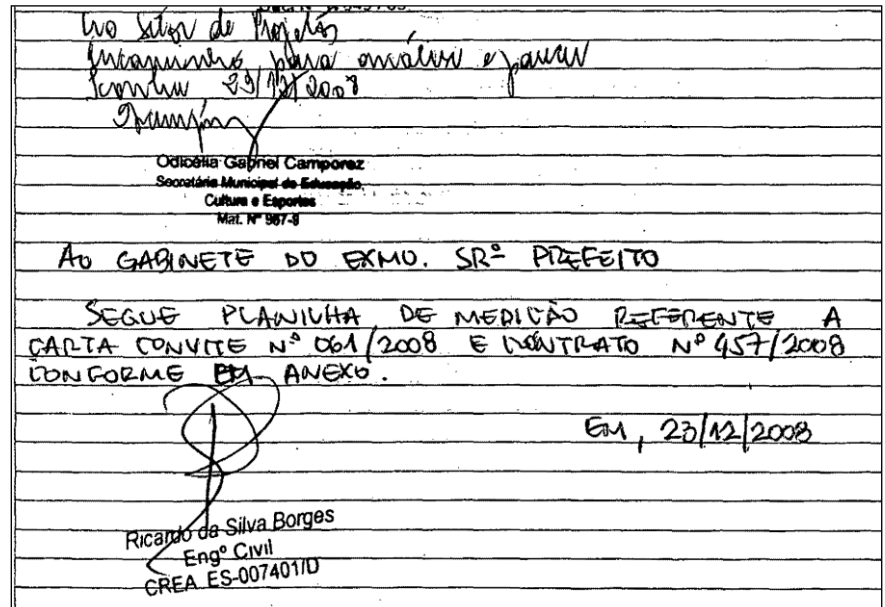 Ao Setor de Projetos
para análise e parecer
23/12/2008
Odicélia Gabriel Camporez
Secretária Municipal de Educação,
Cultura e Esportes
Mat. Nº 967-8
AO GABINETE DO EXMO. SRº PREFEITO
SEGUE PLANILHA DE MEDIÇÃO REFERENTE A
CARTA CONVITE Nº 061/2008 E CONTRATO Nº 457/2008
CONFORME EM ANEXO.
EM, 23/12/2008
Ricardo da Silva Borges
Engº Civil
CREA ES-007401/D